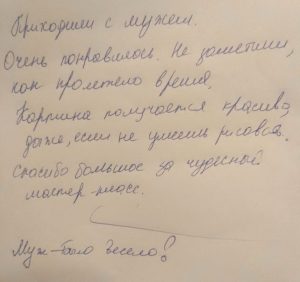 Приходили с мужем.
Очень понравилось. Не заметили,
как пролетело время.
Картина получается красиво,
даже, если не умеешь рисовать.
Спасибо большое за чудесный
мастер-класс.
Муж-было весело!